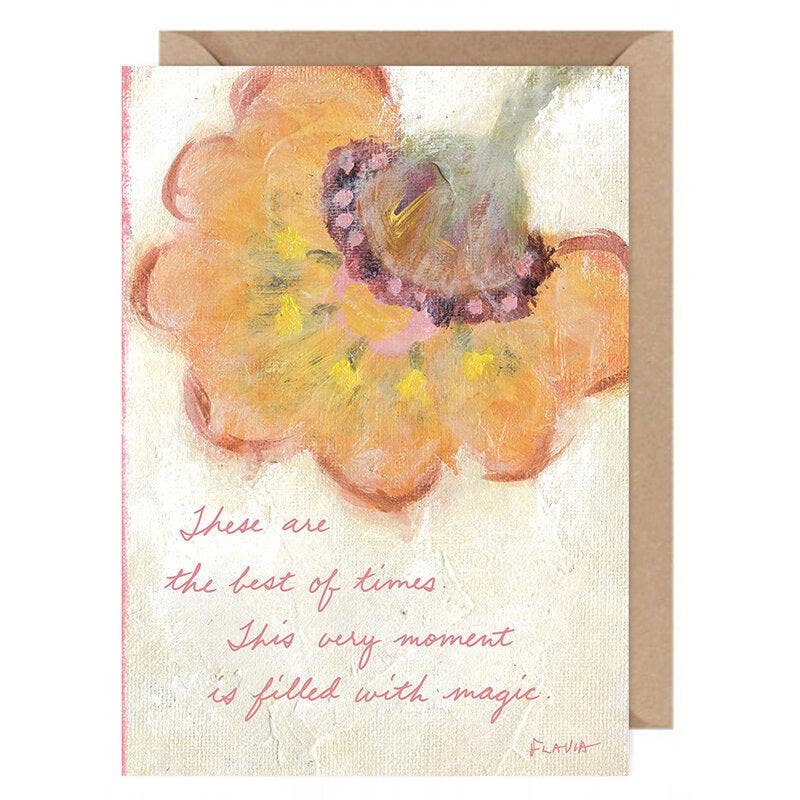 These are
the best of times.
This very moment
is filled with magic.
FLAVIA